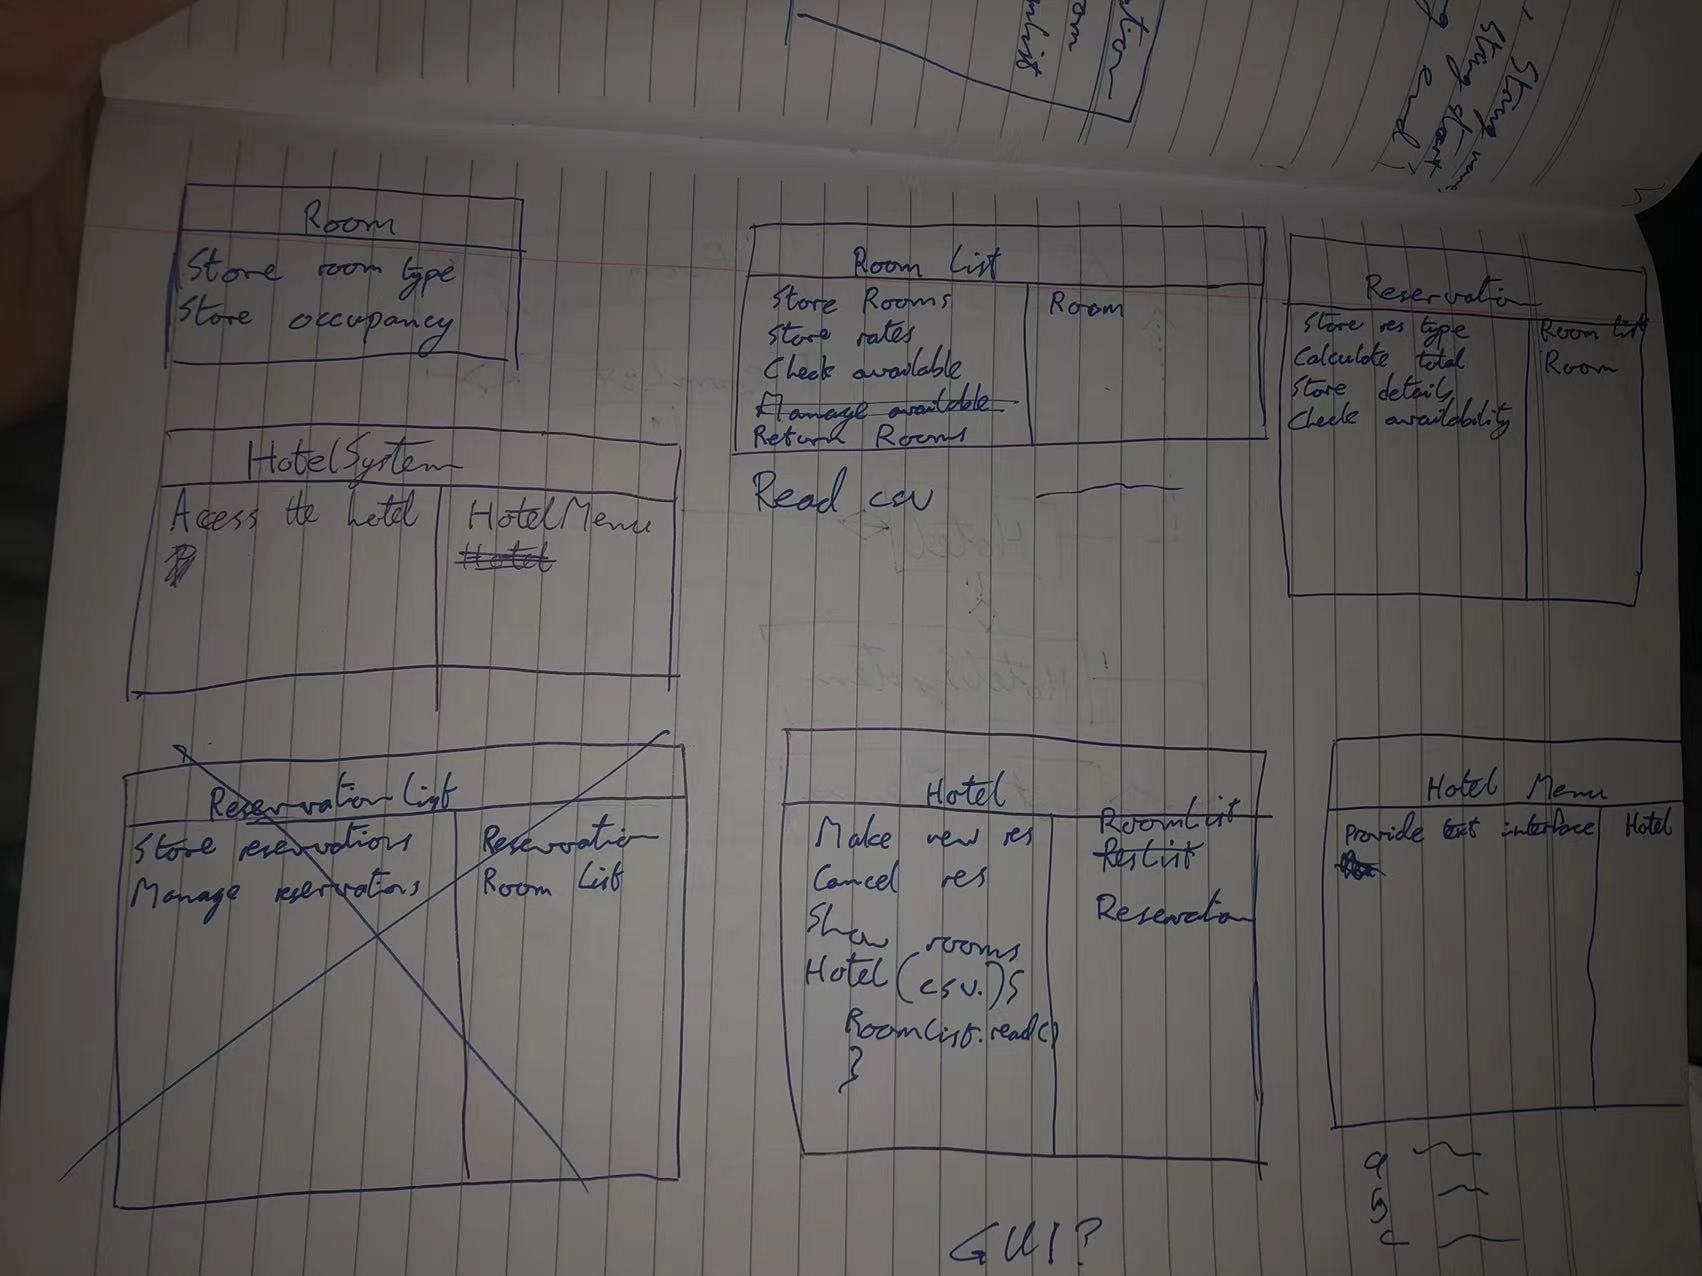 ation
om
mlist
String name,
String start,
end;
Room
Store room type
Store occupancy
Room List
Store Rooms
Store rates
Check available
Manage available
Return Rooms
Room
Read csv
Reservation
Store res type
Calculate total
Store details
Check availability
Room list
Room
HotelSystem
Access the hotel
HotelMenu
Hotel
Reservation List
Store reservations
Manage reservations
Reservation
Room List
Hotel
Make new res
Cancel res
Show rooms
Hotel (csv.){
RoomList.read()
}
RoomList
ResList
Reservation
Hotel Menu
Provide text interface
Hotel
a
b
c
GUI?